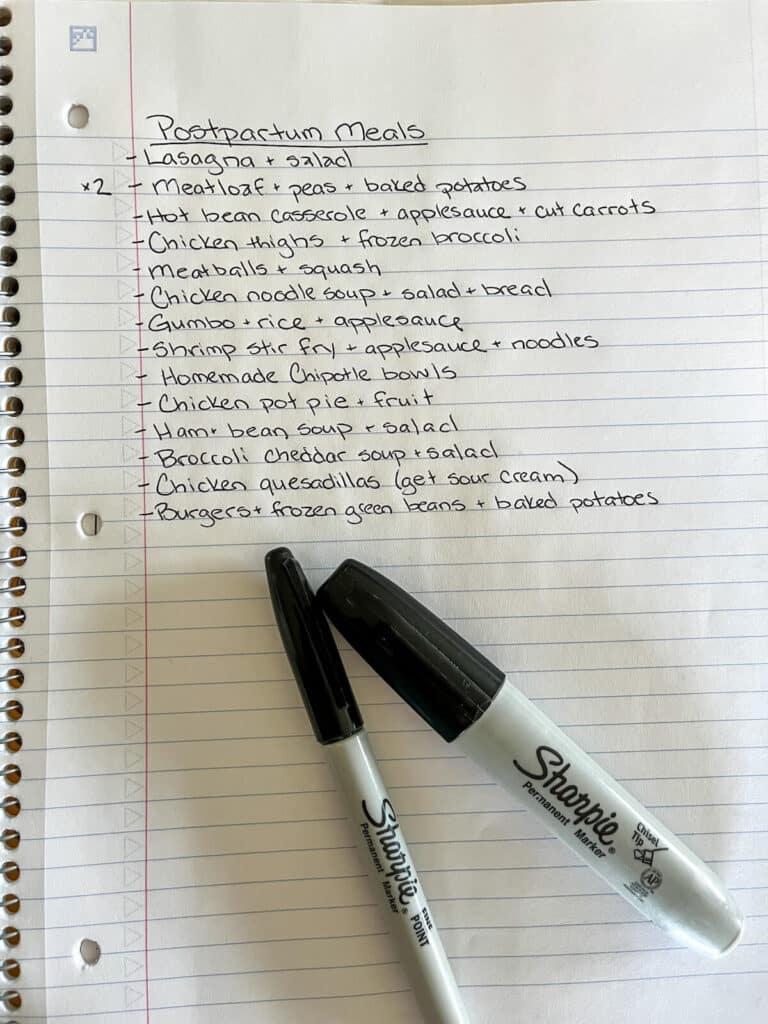 Postpartum Meals
- Lasagna + salad
x2 - Meatloaf + peas + baked potatoes
- Hot bean casserole + applesauce + cut carrots
- Chicken thighs + frozen broccoli
- Meatballs + squash
- Chicken noodle soup + salad + bread
- Gumbo + rice + applesauce
- Shrimp stir fry + applesauce + noodles
- Homemade Chipotle bowls
- Chicken pot pie + fruit
- Ham + bean soup + salad
- Broccoli cheddar soup + salad
- Chicken quesadillas (get sour cream)
- Burgers + frozen green beans + baked potatoes
Sharpie®
Permanent Marker
FINE
POINT
Sharpie®
Permanent Marker
Chisel
Tip
AP